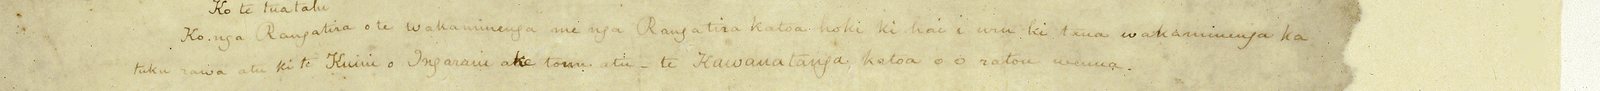 Ko te tuatahi
Ko nga Rangatira o te wakaminenga me nga Rangatira katoa hoki ki hai i uru ki taua wakaminenga ka
tuku rawa atu ki te Kuini o Ingarani ake tonu atu - te Kawanatanga katoa o o ratou wenua.